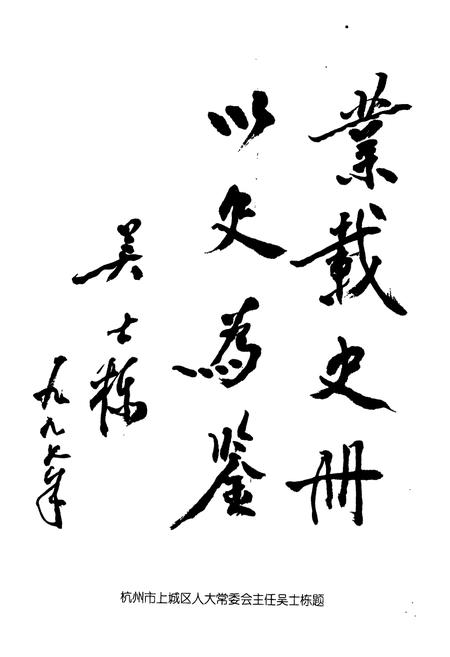 業載史册
以史為鉴
吴士栋
一九九七年
杭州市上城区人大常委会主任吴士栋题